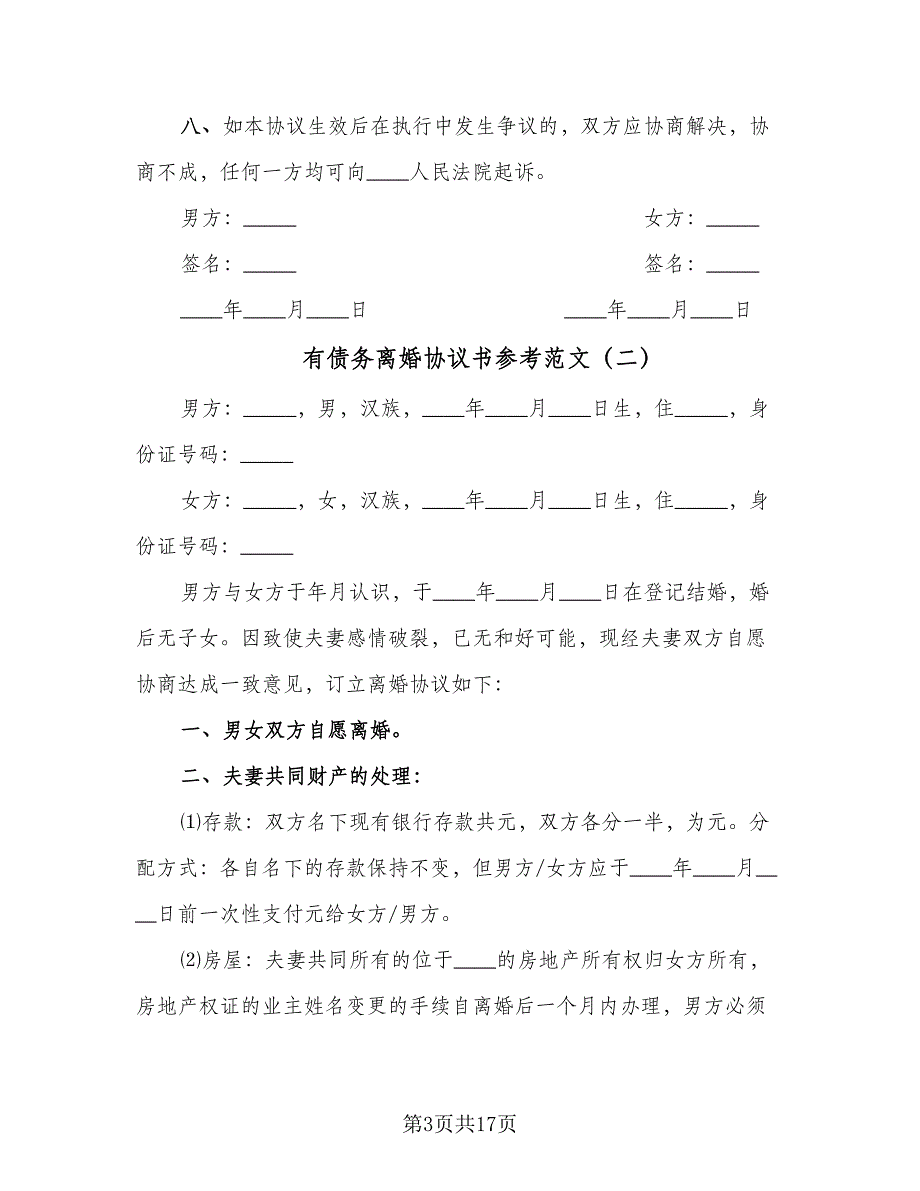 八、如本协议生效后在执行中发生争议的，双方应协商解决，协
商不成，任何一方均可向____人民法院起诉。
男方：_____ 女方：_____
签名：_____ 签名：_____
____年____月____日 ____年____月____日
有债务离婚协议书参考范文（二）
男方：_____，男，汉族，____年____月____日生，住_____，身
份证号码：_____
女方：_____，女，汉族，____年____月____日生，住_____，身
份证号码：_____
男方与女方于年月认识，于____年____月____日在登记结婚，婚
后无子女。因致使夫妻感情破裂，已无和好可能，现经夫妻双方自愿
协商达成一致意见，订立离婚协议如下：
一、男女双方自愿离婚。
二、夫妻共同财产的处理：
⑴存款：双方名下现有银行存款共元，双方各分一半，为元。分
配方式：各自名下的存款保持不变，但男方/女方应于____年____月__
__日前一次性支付元给女方/男方。
⑵房屋：夫妻共同所有的位于____的房地产所有权归女方所有，
房地产权证的业主姓名变更的手续自离婚后一个月内办理，男方必须
第3页共17页